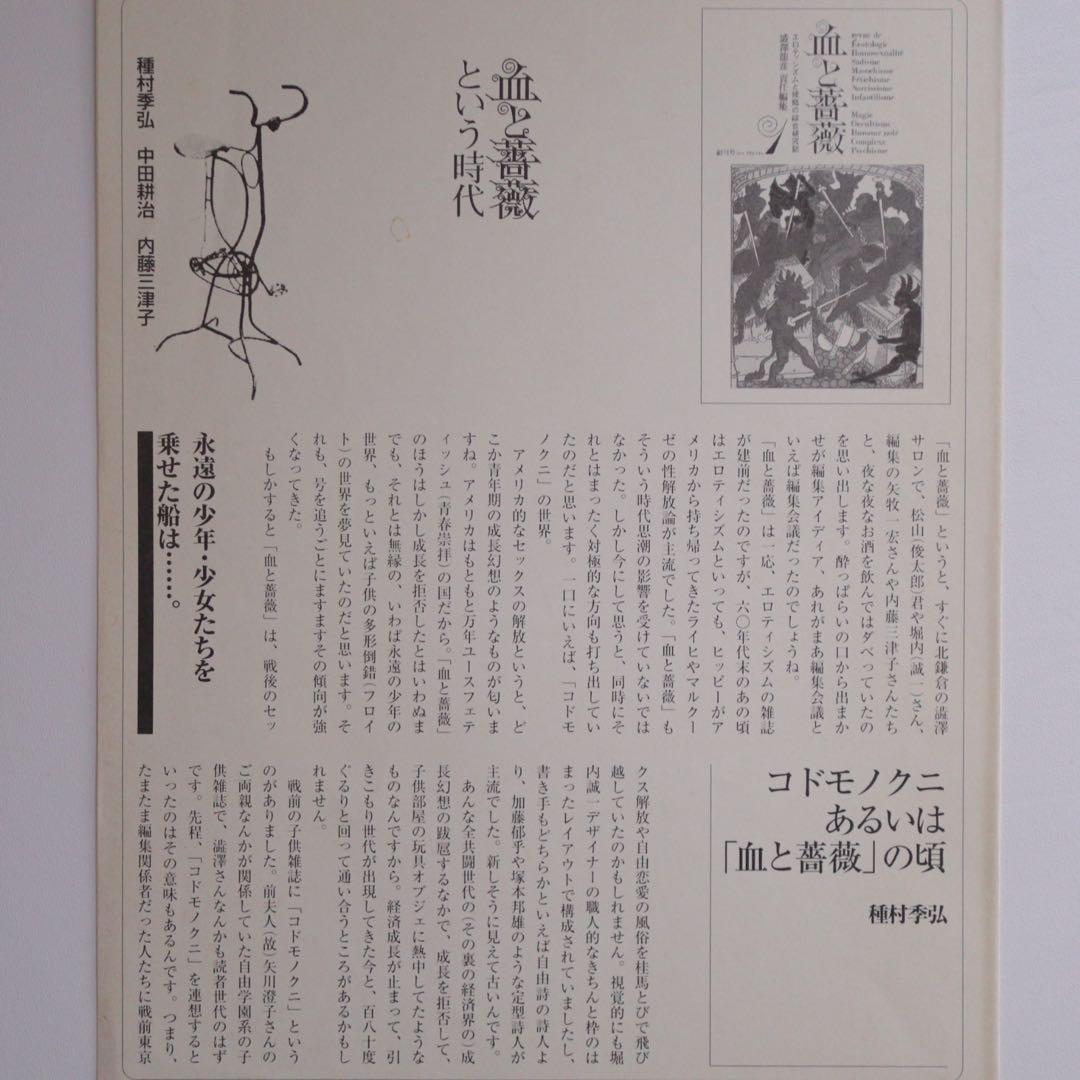 血と薔薇
エロティシズムと残酷の綜合研究誌
澁澤龍彦 責任編集
1
revue de
Érotologie
Homosexualité
Sadisme
Masochisme
Fétichisme
Narcissisme
Infantilisme
Magie
Occultisme
Humour noir
Complexe
Psychisme
血と薔薇
という時代
種村季弘 中田耕治 内藤三津子
「血と薔薇」というと、すぐに北鎌倉の澁澤
サロンで、松山(俊太郎)君や堀内(誠一)さん、
編集の矢牧一宏さんや内藤三津子さんたち
と、夜な夜なお酒を飲んではダベっていたの
を思い出します。酔っぱらいの口から出まか
せが編集アイディア、あれがまあ編集会議と
いえば編集会議だったのでしょうね。
「血と薔薇」は一応、エロティシズムの雑誌
が建前だったのですが、六〇年代末のあの頃
はエロティシズムといっても、ヒッピーがア
メリカから持ち帰ってきたライヒやマルクー
ゼの性解放論が主流でした。「血と薔薇」も
そういう時代思潮の影響を受けていないでは
なかった。しかし今にして思うと、同時にそ
れとはまったく対極的な方向も打ち出してい
たのだと思います。一口にいえば、「コドモ
ノクニ」の世界。
アメリカ的なセックスの解放というと、ど
こか青年期の成長幻想のようなものが匂いま
すね。アメリカはもともと万年ユースフェテ
ィッシュ(青春崇拝)の国だから。「血と薔薇」
のほうはしかし成長を拒否したとはいわぬま
でも、それとは無縁の、いわば永遠の少年の
世界、もっといえば子供の多形倒錯(フロイ
ト)の世界を夢見ていたのだと思います。そ
れも、号を追うごとにますますその傾向が強
くなってきた。
もしかすると「血と薔薇」は、戦後のセッ
永遠の少年・少女たちを
乗せた船は……。
コドモノクニ
あるいは
「血と薔薇」の頃
種村季弘
クス解放や自由恋愛の風俗を桂馬とびで飛び
越していたのかもしれません。視覚的にも堀
内誠一デザイナーの職人的なきちんと枠のは
まったレイアウトで構成されていましたし、
書き手もどちらかといえば自由詩の詩人よ
り、加藤郁乎や塚本邦雄のような定型詩人が
主流でした。新しそうに見えて古いんです。
あんな全共闘世代の(その裏の経済界の)成
長幻想の跋扈するなかで、成長を拒否して、
子供部屋の玩具オブジェに熱中してたような
ものなんですから。経済成長が止まって、引
きこもり世代が出現してきた今と、百八十度
ぐるりと回って通い合うところがあるかもし
れません。
戦前の子供雑誌に「コドモノクニ」という
のがありました。前夫人(故)矢川澄子さんの
ご両親なんかが関係していた自由学園系の子
供雑誌で、澁澤さんなんかも読者世代のはず
です。先程、「コドモノクニ」を連想すると
いったのはその意味もあるんです。つまり、
たまたま編集関係者だった人たちに戦前東京